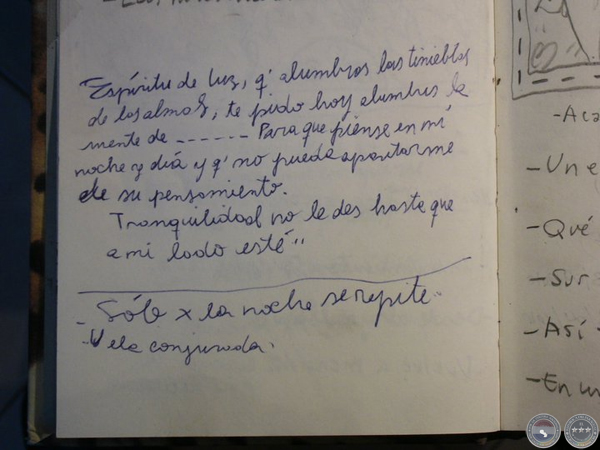 "Espíritu de luz, q' alumbras las tinieblas
de las almas, te pido hoy alumbres la
mente de ------ Para que piense en mí
noche y día y q' no pueda apartarme
de su pensamiento.
Tranquilidad no le des hasta que
a mi lado esté"
- Sólo x la noche se repite.
- Vela conjurada.
- Aca
- Un e
- Qué
- Sur
- Así
- En un